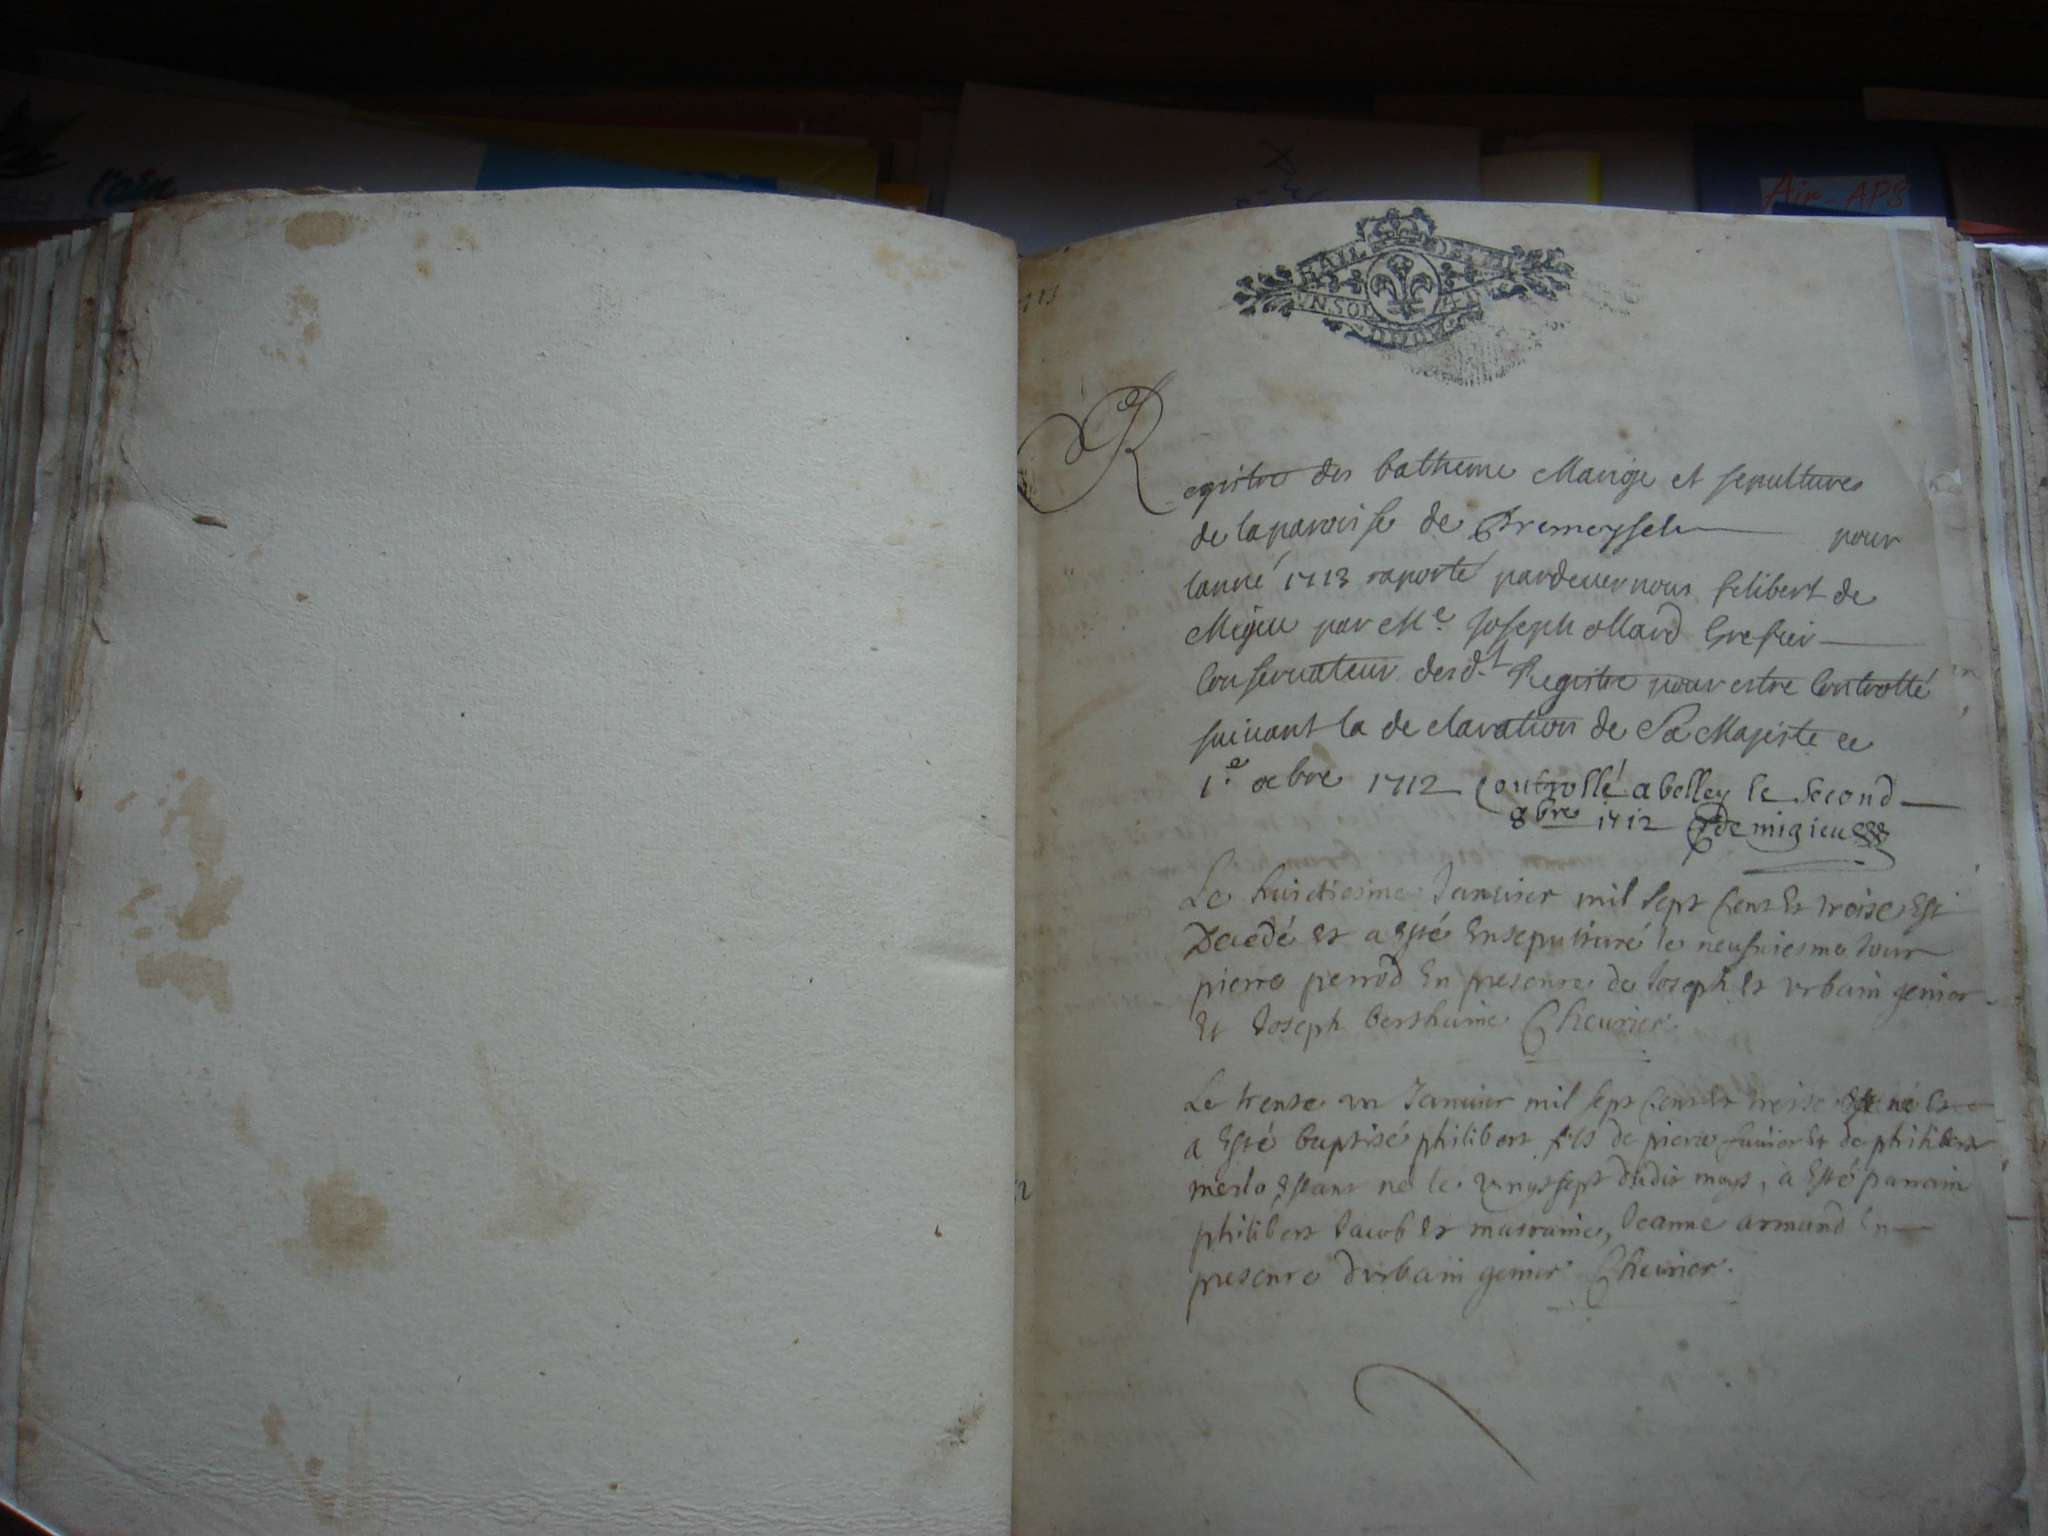 l'ain
Air-APS
BAIL
UN SOL
Registre des batheme Marige et sepultures
de la paroisse de Premeyssel pour
lanné 1713 raporté pardeuer nous filibert de
Migieu par Me Joseph ollard Grefier
Conseruateur desdt Registre pour estre Controllé
suiuant la declaration de Sa Majeste ce
1.e octbre 1712 Controllé a belley le second
8bre 1712 demigieu
Le huictiesme Januier mil sept Cent Et treise Est
Decedé Et a Esté Ensepulturé le neufuiesme Jour
pierre perrod En presence de Joseph Et vrbain genier
Et Joseph berthaine Cheurier
Le trente vn Januier mil sept Cent Et treise né Et
a Esté baptisé philibert fils de pierre Et de philiberte
merlo Estant né le vingtsept dudit moys, a Esté parrain
philibert Jacob Et marraine, Jeanne armand En
presence d'vrbain genier Cheurier.